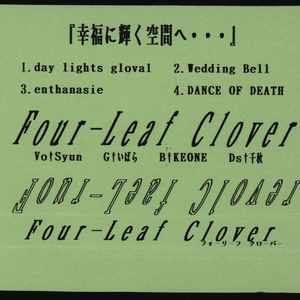 『幸福に輝く空間へ・・・』
1.day lights gloval 2.Wedding Bell
3.enthanasie 4.DANCE OF DEATH
Four-Leaf Clover
Vo†Syun G†いばら B†KEONE Ds†千秋
Four-Leaf Clover
Four-Leaf Clover
フォーリーフ クローバー